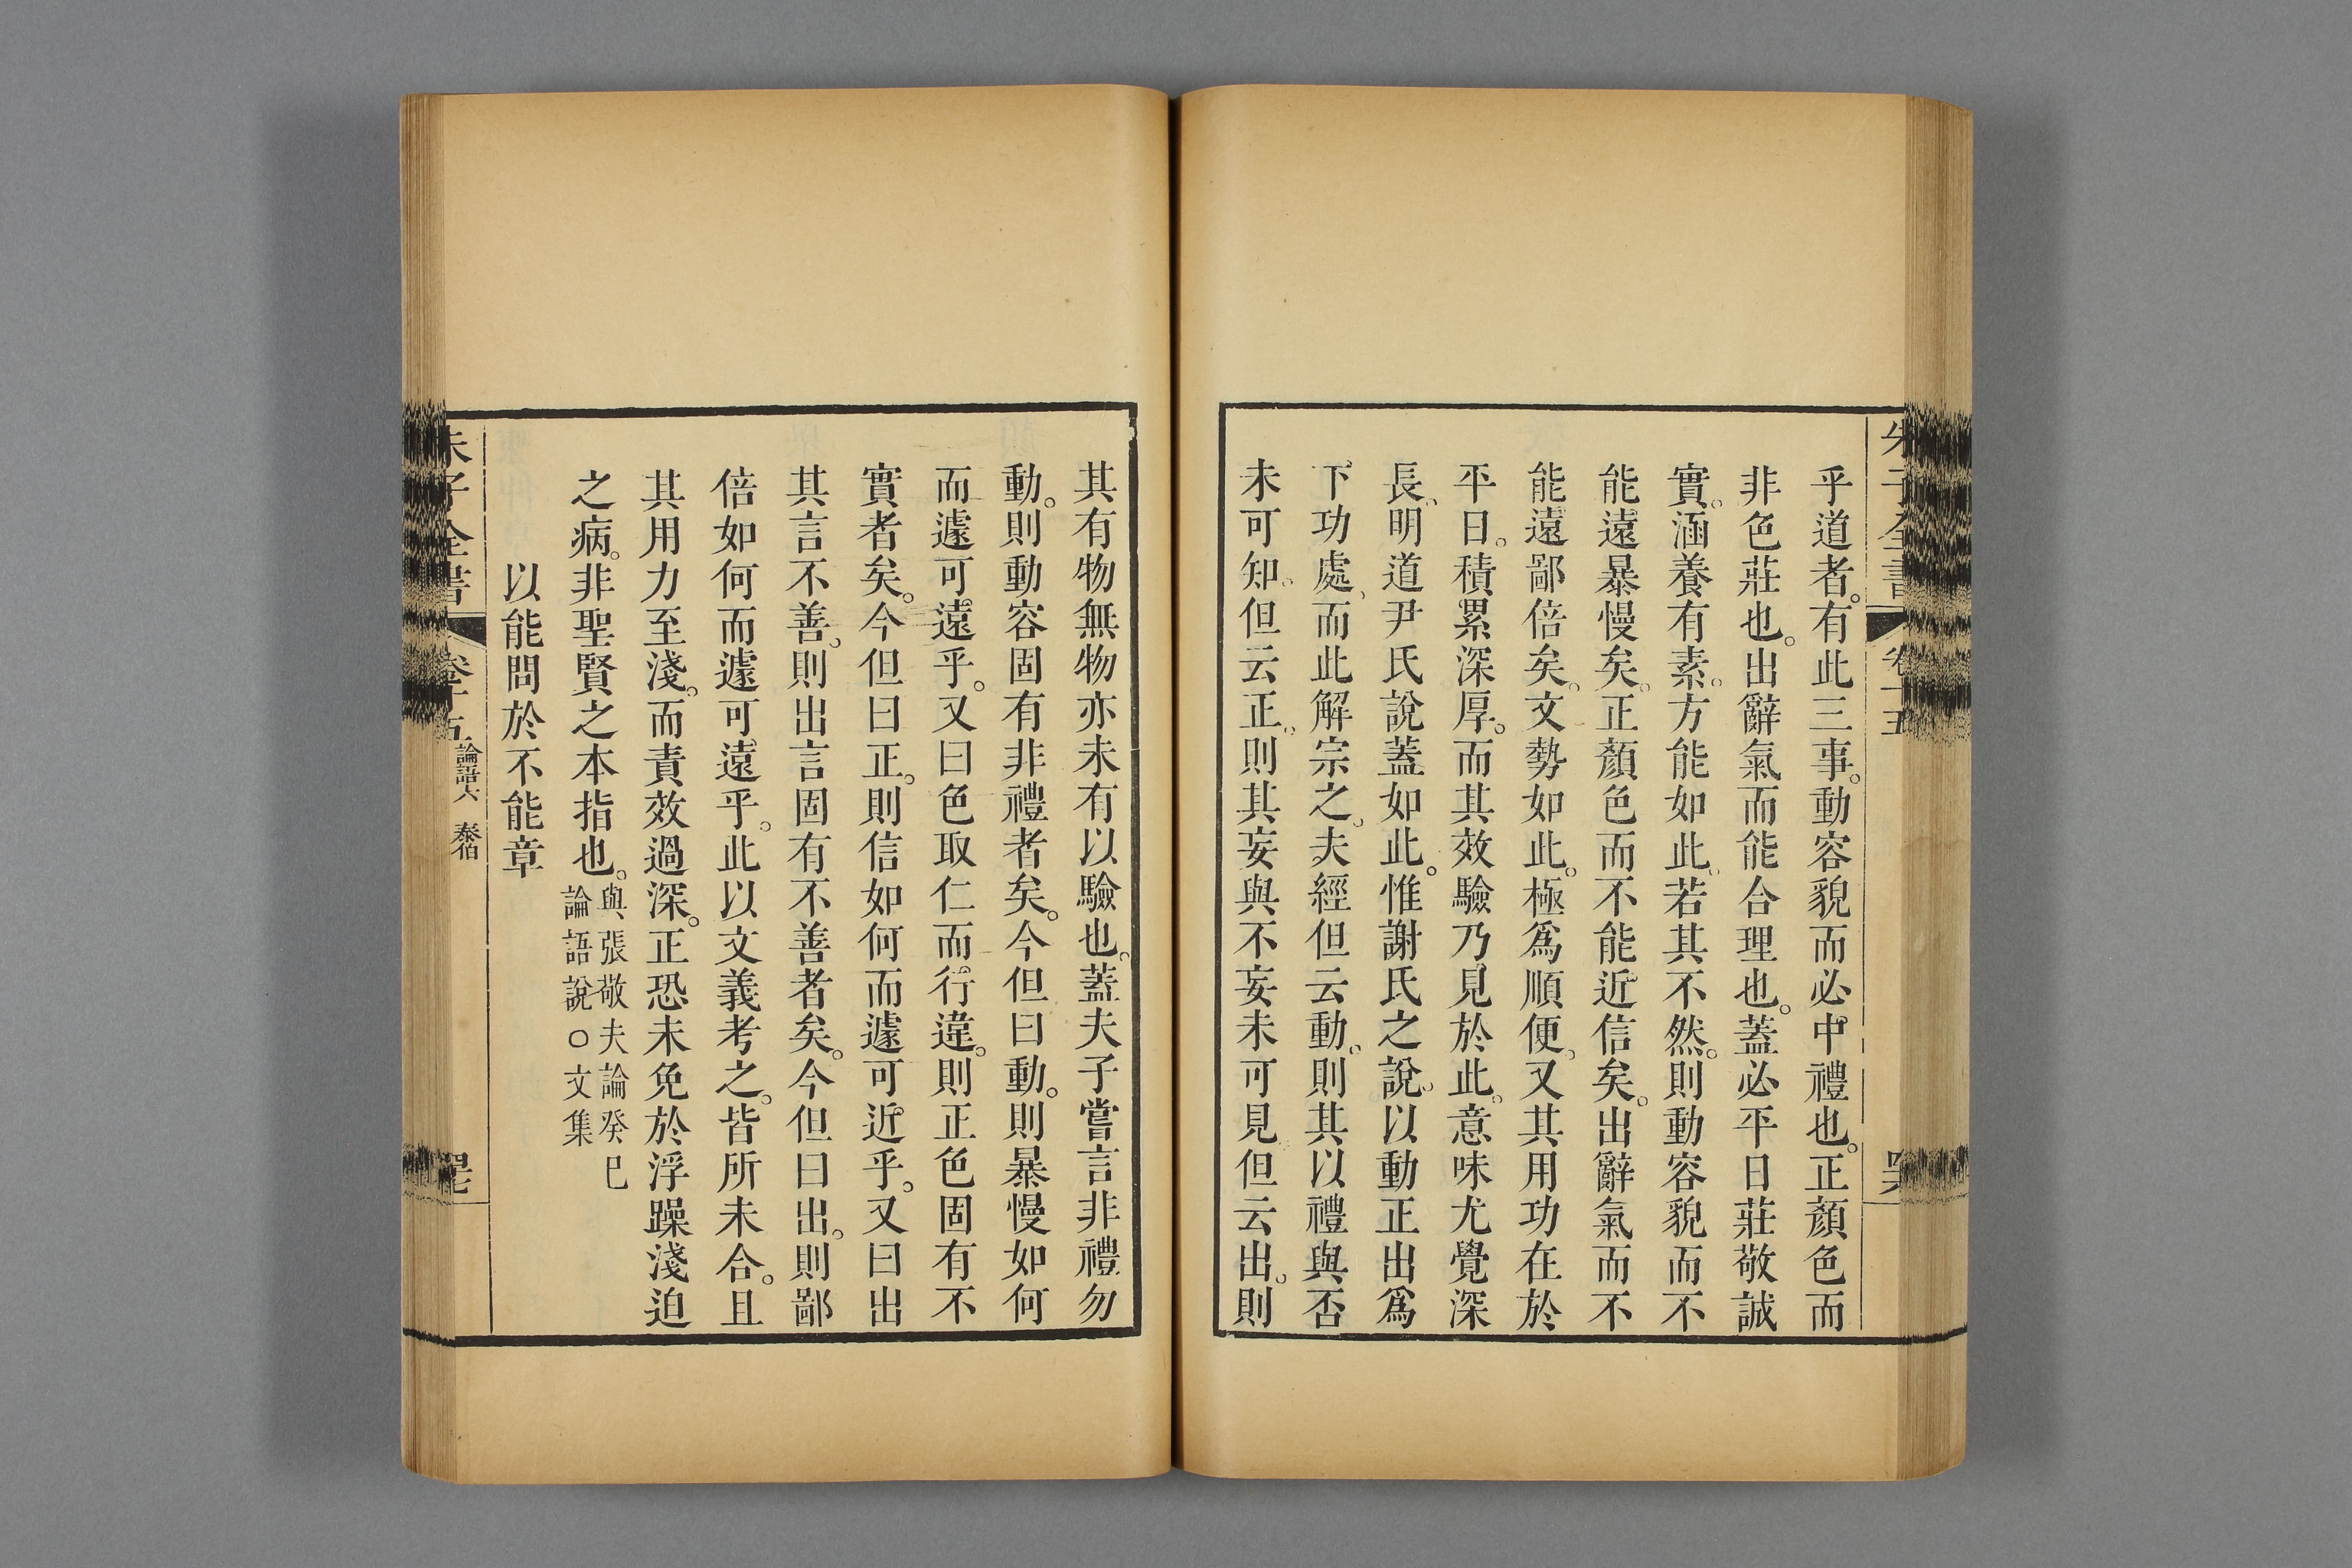 朱子全書 卷十五
乎道者。有此三事。動容貌而必中禮也。正顏色而
非色莊也。出辭氣而能合理也。蓋必平日莊敬誠
實。涵養有素。方能如此。若其不然。則動容貌而不
能遠暴慢矣。正顏色而不能近信矣。出辭氣而不
能遠鄙倍矣。文勢如此。極爲順便。又其用功在於
平日。積累深厚。而其效驗乃見於此。意味尤覺深
長。明道尹氏說蓋如此。惟謝氏之說。以動正出爲
下功處。而此解宗之。夫經但云動。則其以禮與否
未可知。但云正。則其妄與不妄未可見。但云出。則
其有物無物亦未有以驗也。蓋夫子嘗言非禮勿
動。則動容固有非禮者矣。今但曰動。則暴慢如何
而遽可遠乎。又曰色取仁而行違。則正色固有不
實者矣。今但曰正。則信如何而遽可近乎。又曰出
其言不善。則出言固有不善者矣。今但曰出。則鄙
倍如何而遽可遠乎。此以文義考之。皆所未合。且
其用力至淺。而責效過深。正恐未免於浮躁淺迫
之病。非聖賢之本指也。與張敬夫論癸巳論語說○文集
以能問於不能章
朱子全書 卷十五 論語六 泰伯